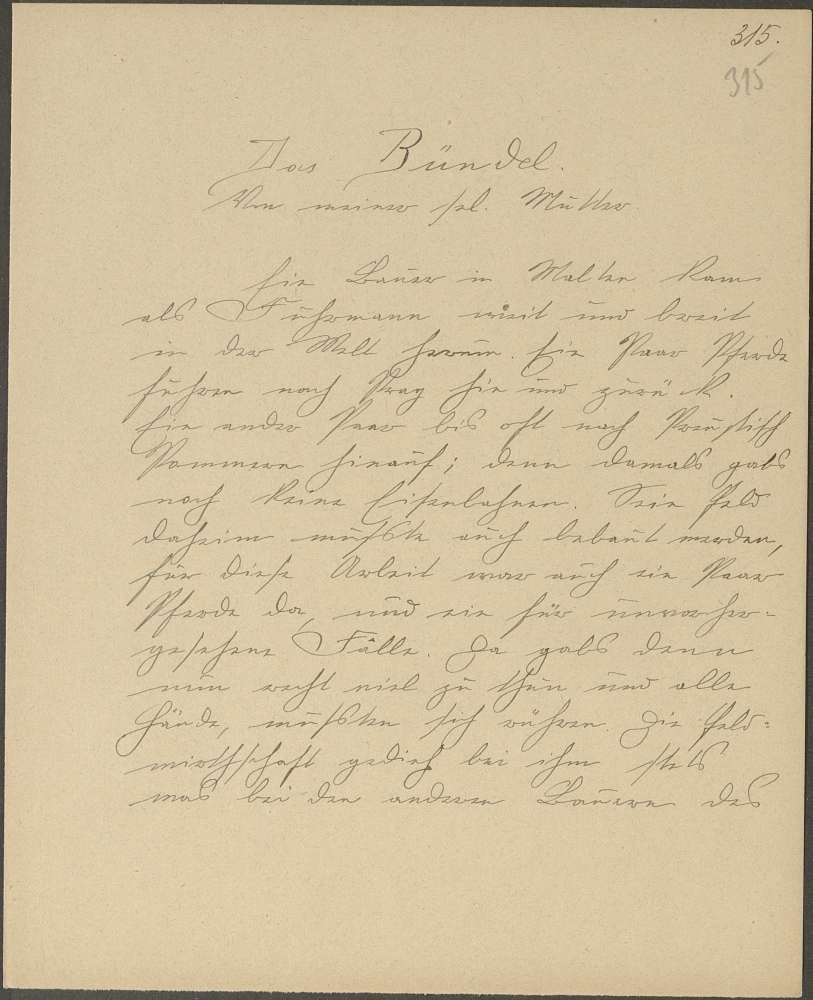 315.
315
Das Bündel.
Von meiner sel. Mutter.
Ein Bauer in Malten kam
als Fuhrmann weit und breit
in der Welt herum. Ein Paar Pferde
fuhren nach Prag hin und zurück.
Ein ander Paar bis oft nach Preußisch
Pommern hinauf; denn damals gabs
noch keine Eisenbahnen. Sein Feld
daheim mußste auch bebaut werden,
für diese Arbeit war auch ein Paar
Pferde da, und ein für unvorher-
gesehene Fälle. Da gabs denn
nun recht viel zu thun und alle
Hände, mußsten sich rühren. Die Feld=
wirthschaft gedieh bei ihm stets
was bei den anderen Bauern des